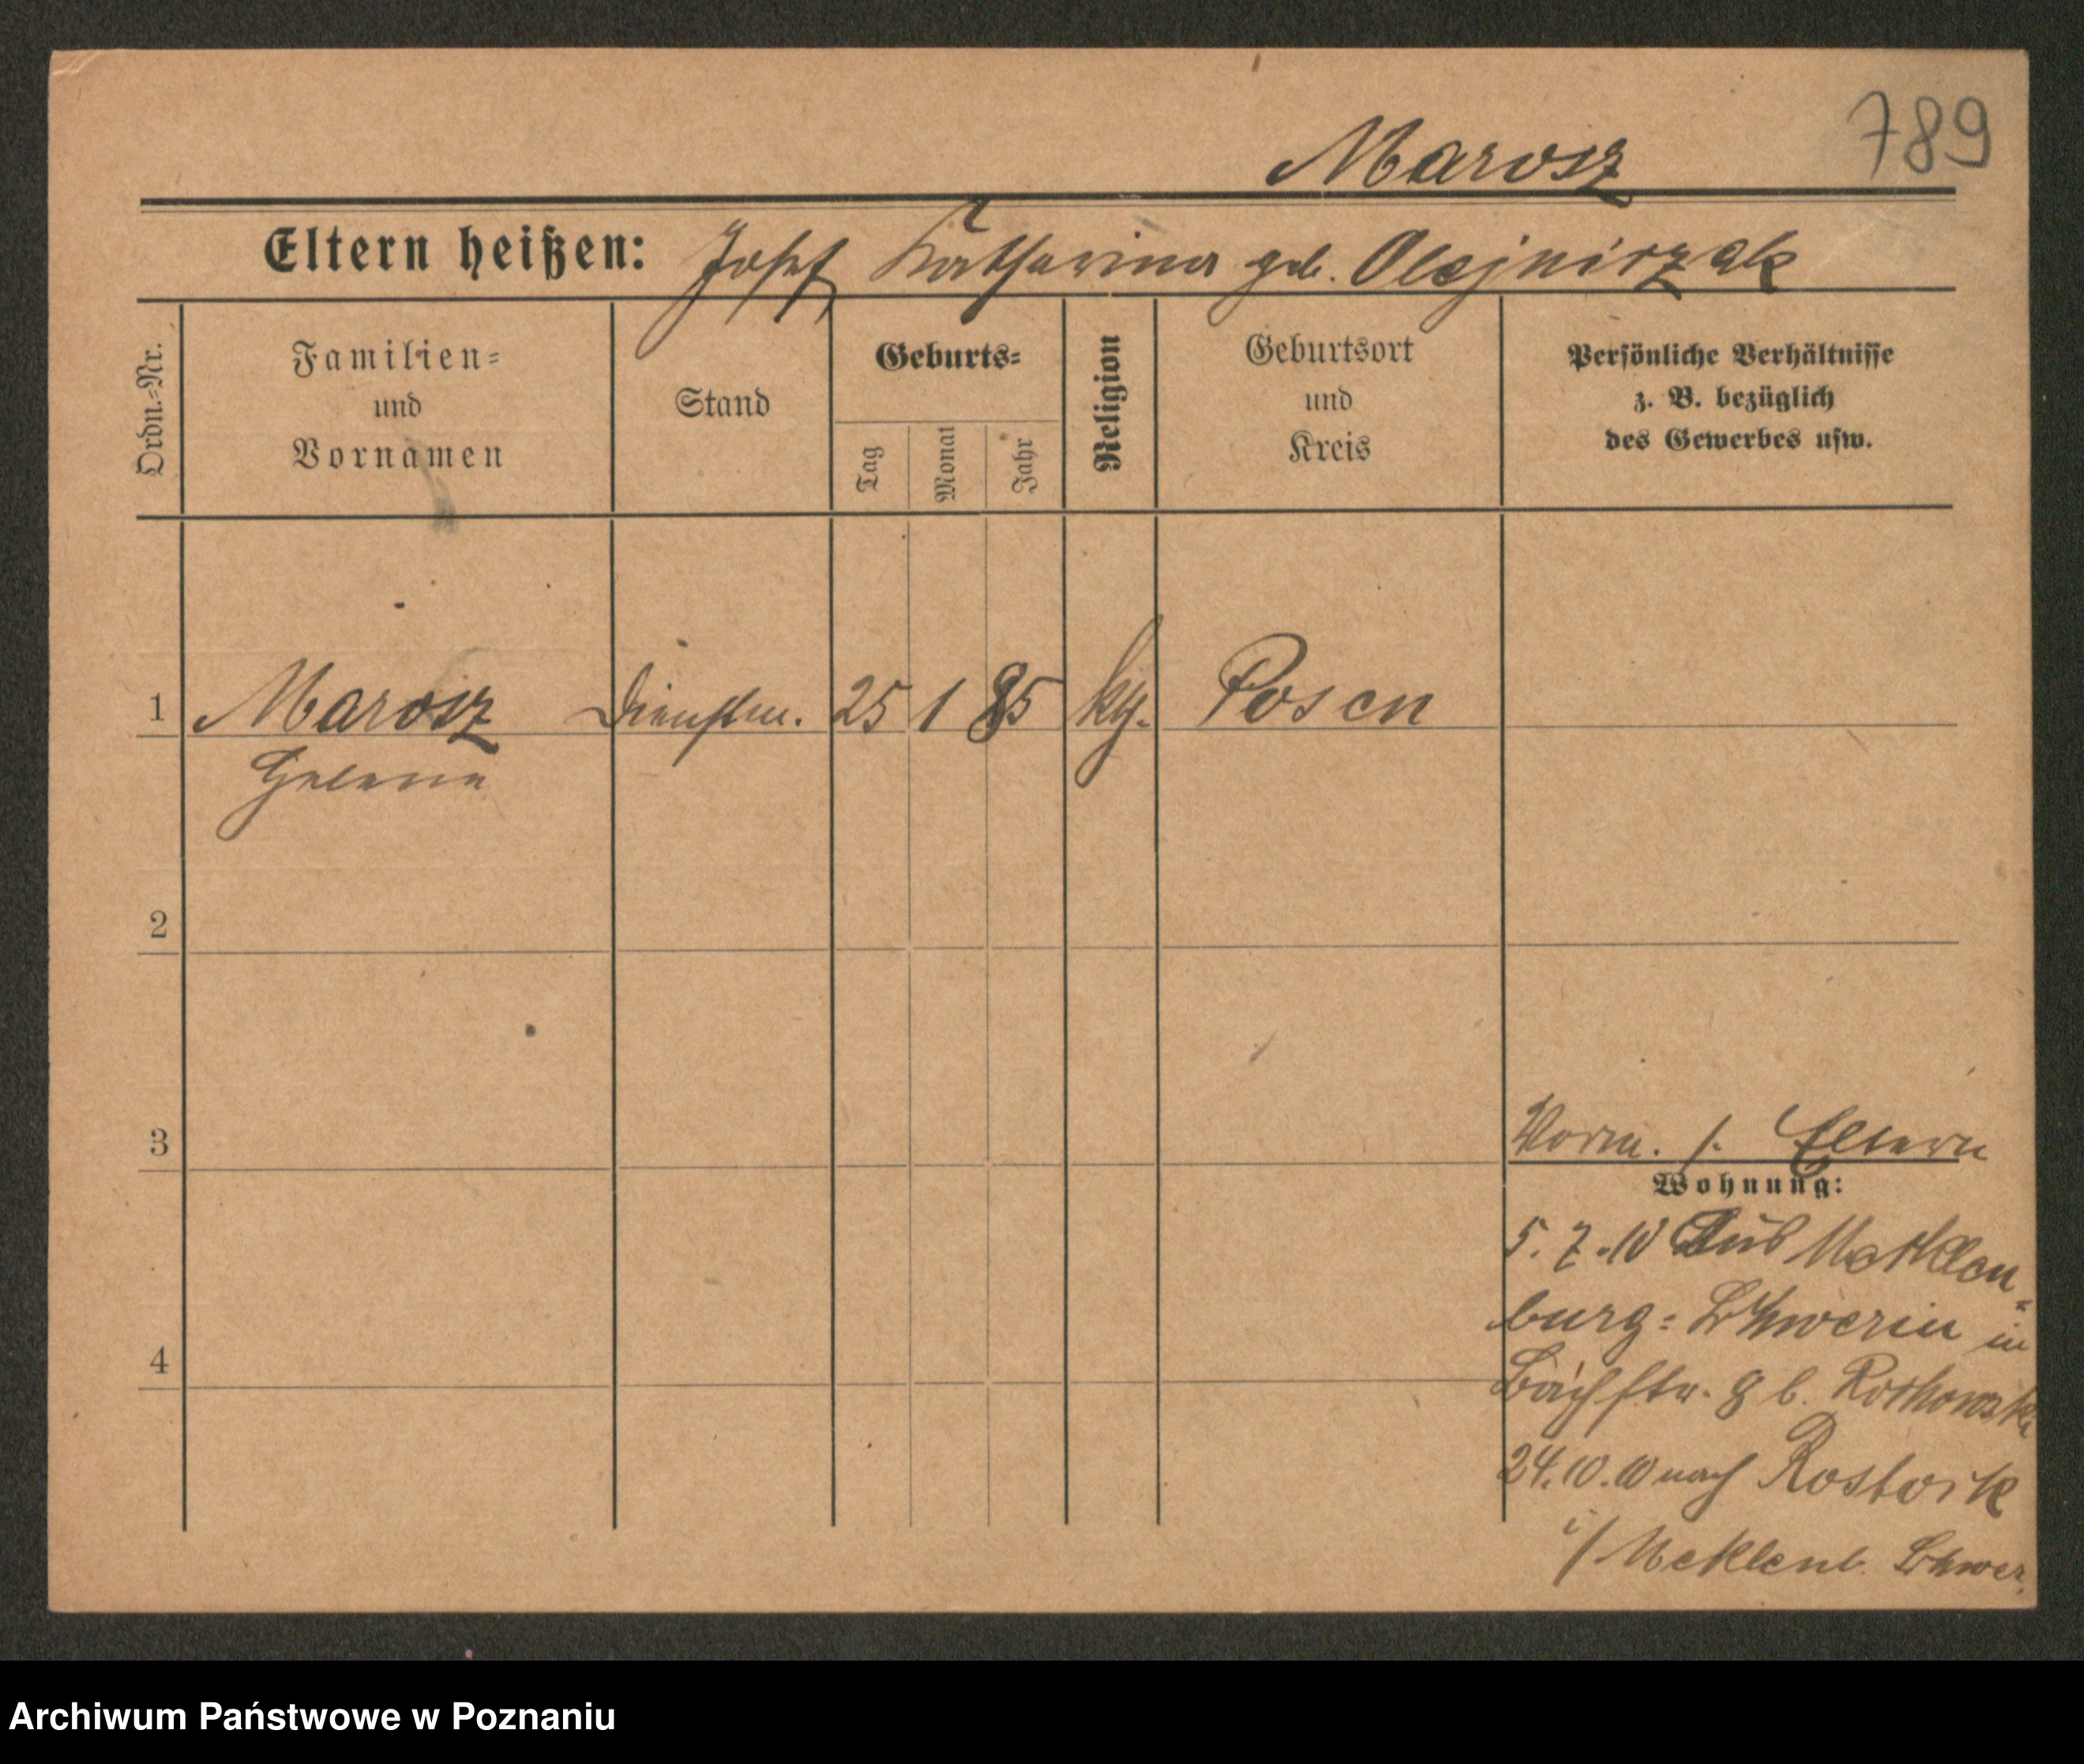 789
Marosz
Eltern heißen: Josef, Katharina geb. Olejniczak
Ordn.=Nr.
Familien=
und
Vornamen
Stand
Geburts=
Tag
Monat
Jahr
Religion
Geburtsort
und
Kreis
Persönliche Verhältnisse
z. B. bezüglich
des Gewerbes usw.
1 Marosz Dienstm. 25 1 85 kg. Posen
Helene
2
3
Vorm. s. Eltern
Wohnung:
5. 7. 10 Aus Mecklen=
burg=Schwerin in
4
Bachstr. 8 b.
24. 10. 10 nach Rostock
i/ Mecklenb. Schwer.
Archiwum Państwowe w Poznaniu